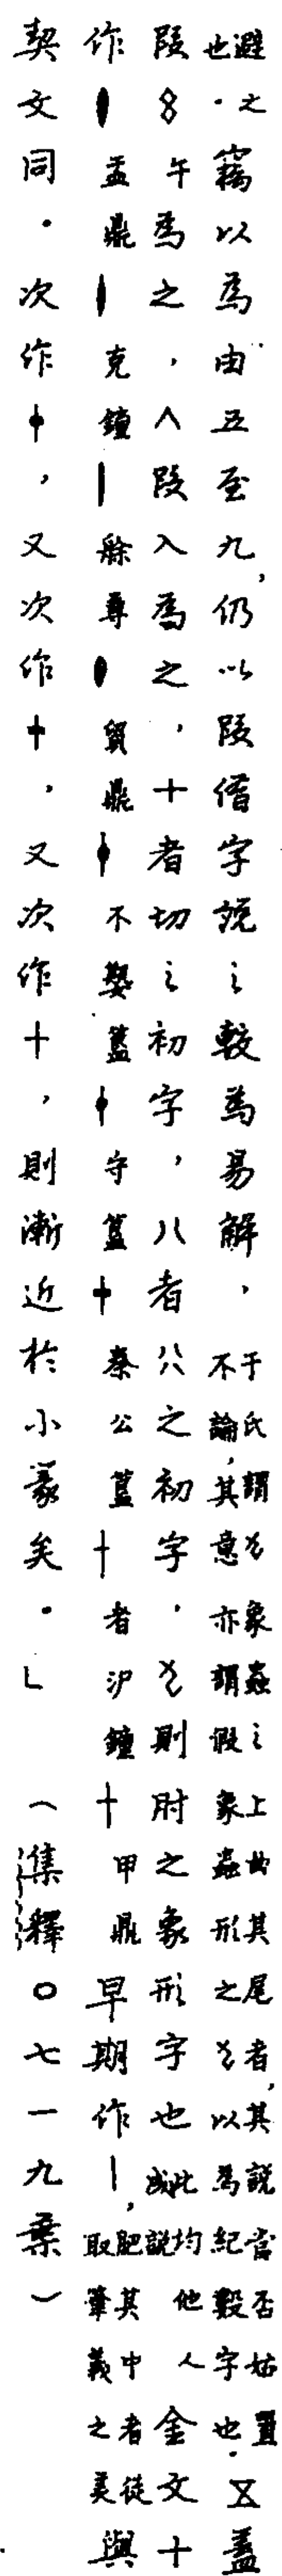 避之也。竊以為由五至九,仍以叚借字說之較為易解,于氏謂九象蟲之上曲其尾者,其說當否姑置不論,其意亦謂假象蟲形之九以為紀數字也。乂蓋
叚8午為之,∧叚入為之,十者切之初字,八者𠔁之初字,九則肘之象形字也此均他人成說金文十
作盂鼎克鐘丨尊貿鼎不簋守簋十秦公簋十者沪鐘十甲鼎早期作丨,肥其中者徒取筆義之美與
契文同。次作十,又次作十,又次作十,則漸近於小篆矣。」(集釋〇七一九葉)